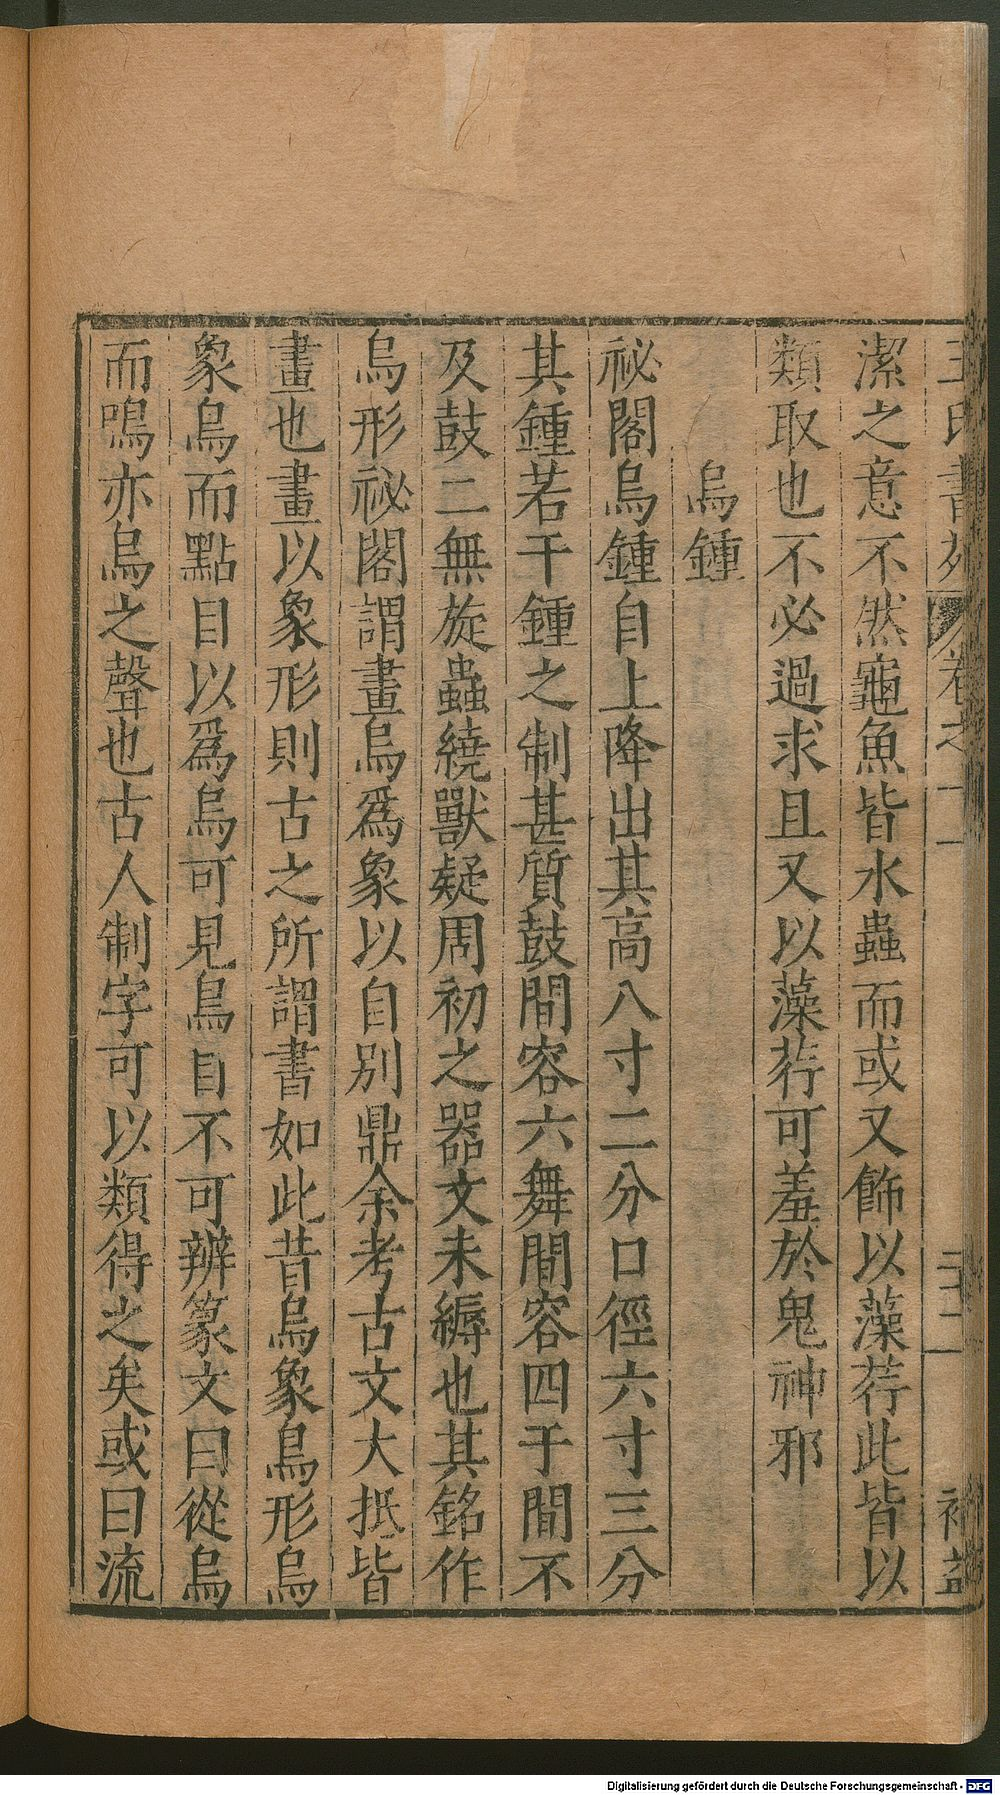 王氏書苑 卷之十一 二十二 補益
潔之意不然龜魚皆水蟲而或又飾以藻荇此皆以
類取也不必過求且又以藻荇可羞於鬼神邪
烏鍾
祕閣烏鍾自上降出其高八寸二分口徑六寸三分
其鍾若干鍾之制甚質鼓間容六舞間容四于間不
及鼓二無旋蟲繞獸疑周初之器文未縟也其銘作
烏形祕閣謂畫烏為象以自別鼎余考古文大抵皆
畫也畫以象形則古之所謂書如此昔烏象鳥形烏
象鳥而點目以爲烏可見鳥目不可辨篆文曰從烏
而鳴亦烏之聲也古人制字可以類得之矣或曰流
Digitalisierung gefördert durch die Deutsche Forschungsgemeinschaft - DFG